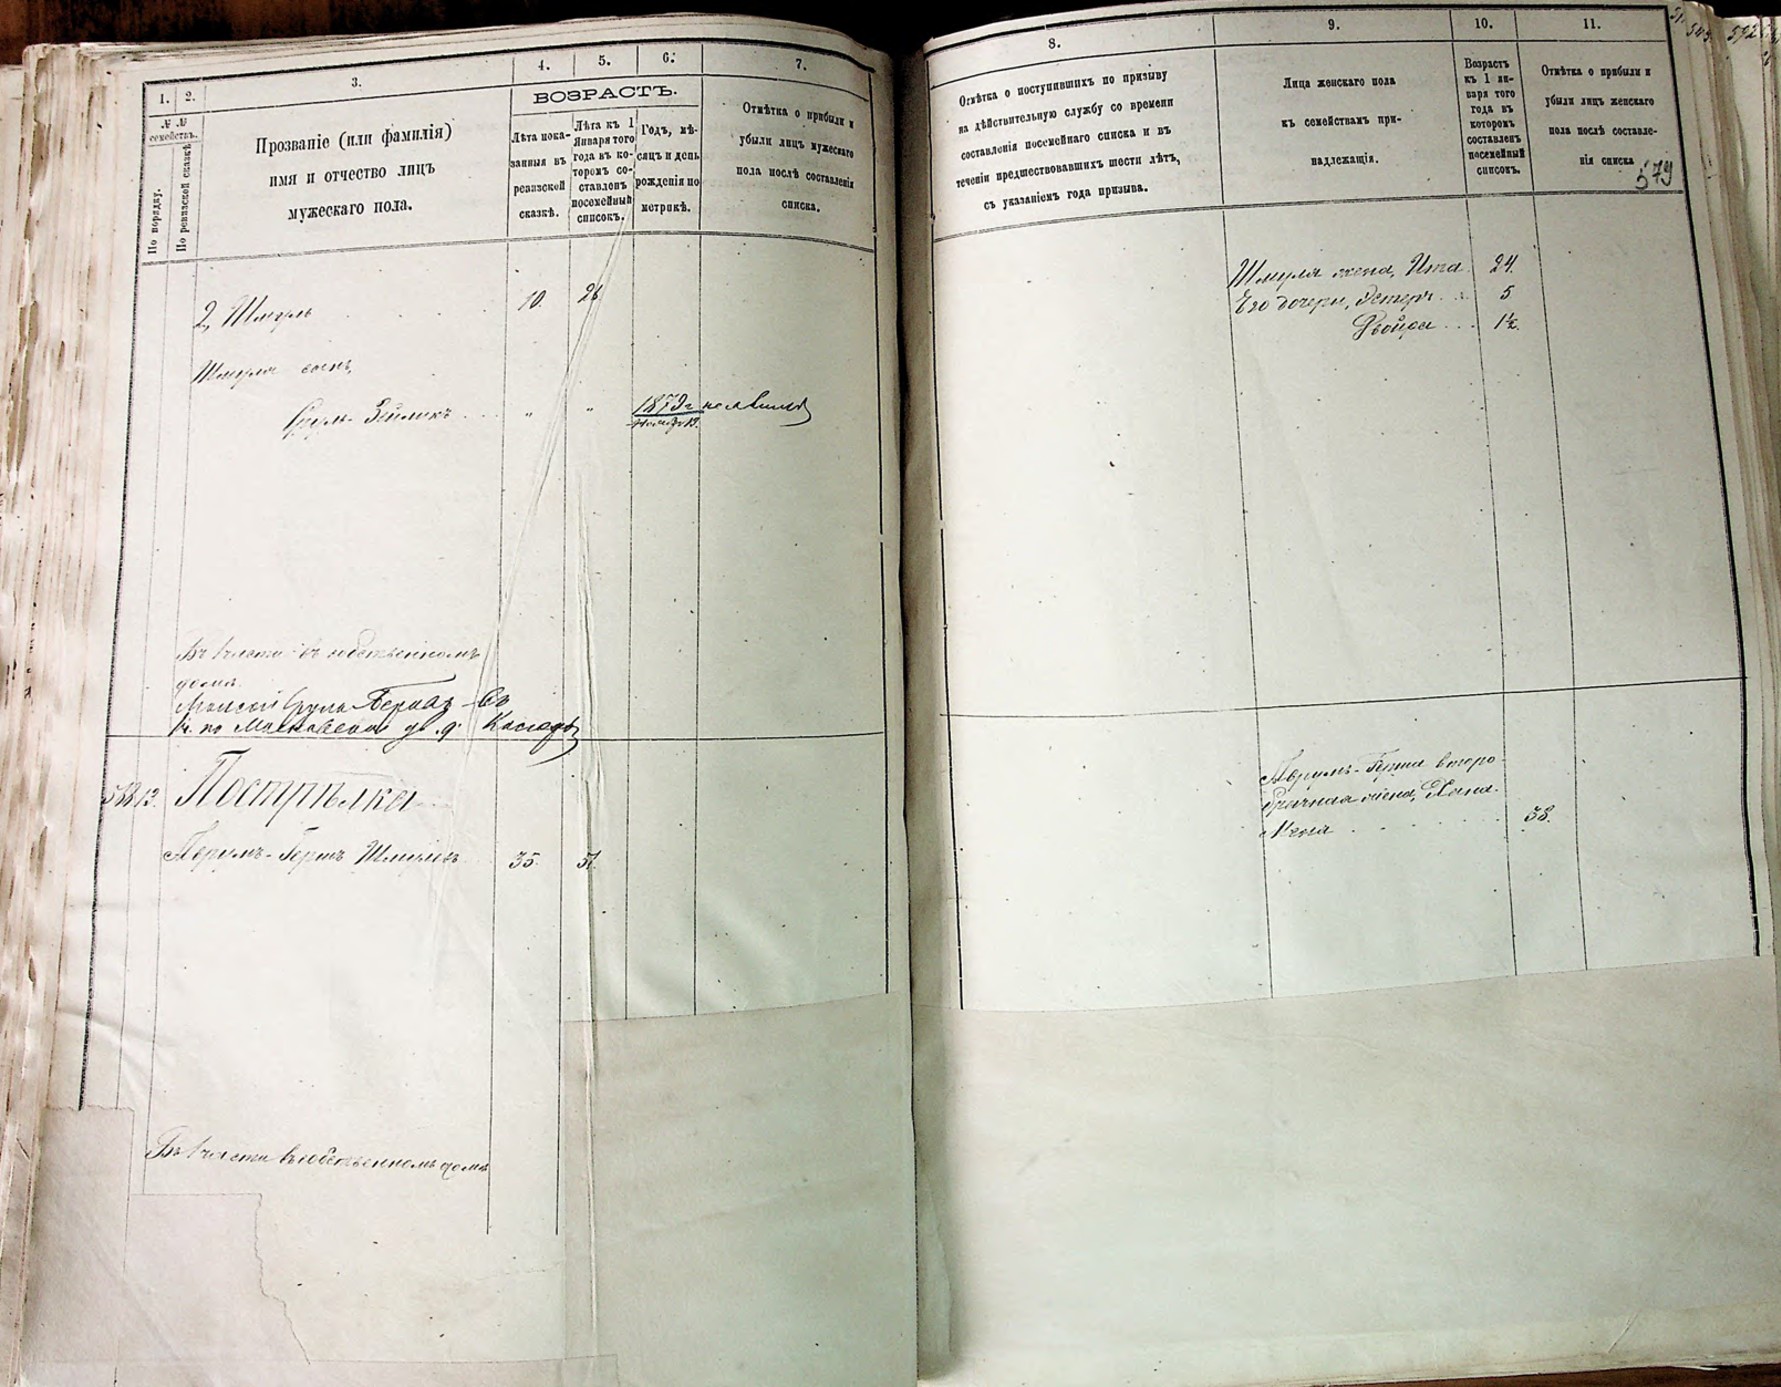 1.
2.
3.
4.
5.
6.
7.
№ №
семействъ.
По порядку.
По ревизской сказкѣ
Прозваніе (или фамилія)
имя и отчество лицъ
мужескаго пола.
ВОЗРАСТЪ.
Лѣта пока-
занныя въ
ревизской
сказкѣ.
Лѣта къ 1
Января того
года въ ко-
торомъ со-
ставленъ
посемейный
списокъ.
Годъ, мѣ-
сяцъ и день
рожденія по
метрикѣ.
Отмѣтка о прибыли и
убыли лицъ мужескаго
пола послѣ составленія
списка.
2, Шмуль 10. 26
Шмуля сынъ,
Сруль-Зейликъ " " 1879 г.
Въ части въ собственномъ
домѣ.
по Московской ул. д.
13. Пострѣлка
Аврумъ-Гершъ Шмулевъ 35. 51.
Въ части въ собственномъ домѣ
8.
9.
10.
11.
Отмѣтка о поступившихъ по призыву
на дѣйствительную службу со времени
составленія посемейнаго списка и въ
теченіи предшествовавшихъ шести лѣтъ,
съ указаніемъ года призыва.
Лица женскаго пола
къ семействамъ при-
надлежащія.
Возрастъ
къ 1 ян-
варя того
года въ
которомъ
составленъ
посемейный
списокъ.
Отмѣтка о прибыли и
убыли лицъ женскаго
пола послѣ составле-
нія списка
579
592
Шмуля жена, Ита 24.
Его дочери, Эстеръ 5
Двойра 1½.
Аврумъ-Герша второ-
брачная жена, Хана-
38.